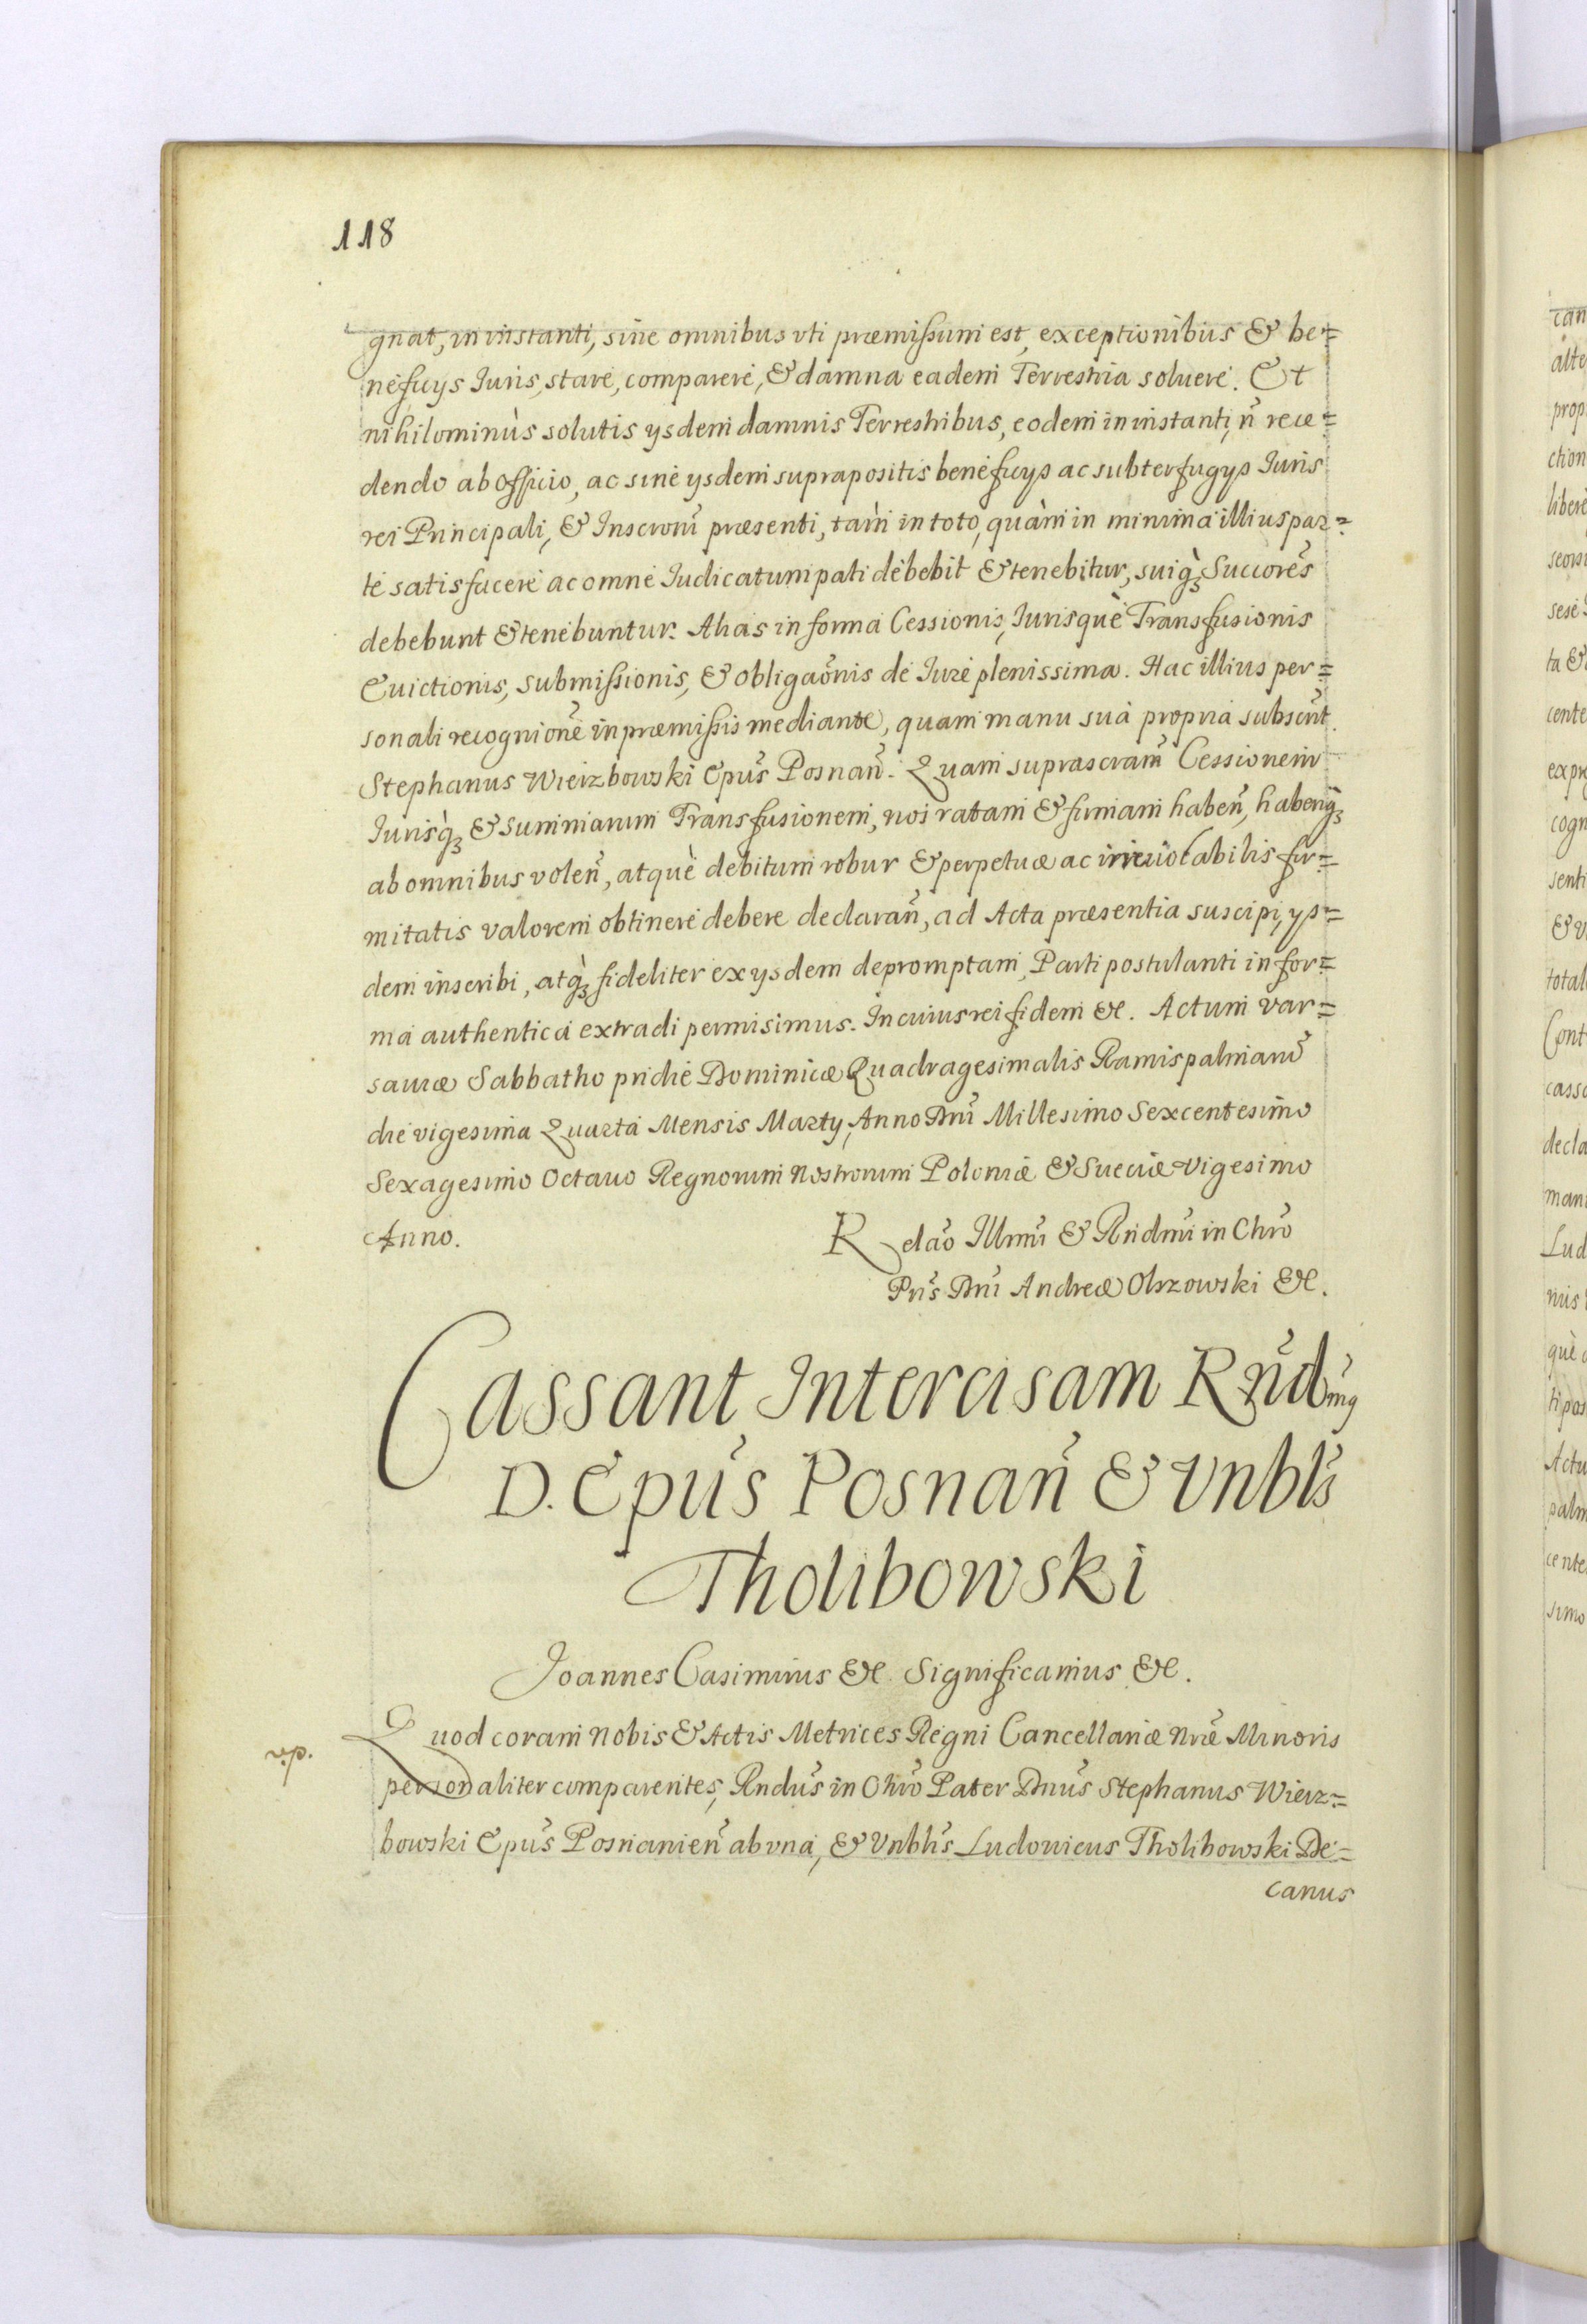 118
gnat, in instanti, sine omnibus vti præmissum est, exceptionibus & be=
neficÿs Iuris, stare, comparere, & damna eadem Terrestria soluere. Et
nihilominùs solutis ÿsdem damnis Terrestribus, eodem in instanti, ñ rece=
dendo ab officio, ac sine ÿsdem suprapositis beneficÿs ac subterfugÿs Iuris
rei Principali, & Inscroni præsenti, tàm in toto, quàm in minima illius par=
te satisfacere ac omne Iudicatum pati debebit & tenebitur, suiq́ꝫ Succores
debebunt & tenebuntur. Alias in forma Cessionis, Iurisquè Transfusionis
Euictionis, submissionis, & obligaonis de Iure plenissima. Hac illius per=
sonali recognione in præmissis mediante, quam manu sua propria subscrit.
Stephanus Wierzbowski Epus Posnañ. Quam suprascram Cessionem
Iurisq́ꝫ & summarum Transfusionem, nos ratam & firmam habeñ, haberiq́ꝫ
ab omnibus voleñ, atquè debitum robur & perpetuæ ac irreuocabilis fir=
mitatis valorem obtinere debere declarañ, ad Acta præsentia suscipi, ÿs=
dem inscribi, atq́ꝫ fideliter ex ÿsdem depromptam, Parti postulanti in for=
ma authentica extradi permisimus. In cuius rei fidem &c. Actum Var=
sauiæ Sabbatho pridie Dominicæ Quadragesimalis Ramispalmarũ
die vigesima Quarta Mensis Martÿ, Anno Dni Millesimo Sexcentesimo
Sexagesimo Octauo Regnorum Nostrorum Poloniæ & Sueciæ Vigesimo
Anno.
Relao Illmi & Rndmi in Chro
Pris Dni Andreæ Olszowski &c.
Cassant Intercisam Rnd̃mꝯ
D. Epus Posnañ & Vnblis
Tholibowski
Joannes Casimirus &c. Significamus &c.
Quod coram Nobis & Actis Metrices Regni Cancellariæ Nræ Minoris
v.p.
personaliter comparentes, Rndus in Chro Pater Dnus Stephanus Wierz=
bowski Epus Posnanieñ ab vna, & Vnblis Ludouicus Tholibowski De=
canus